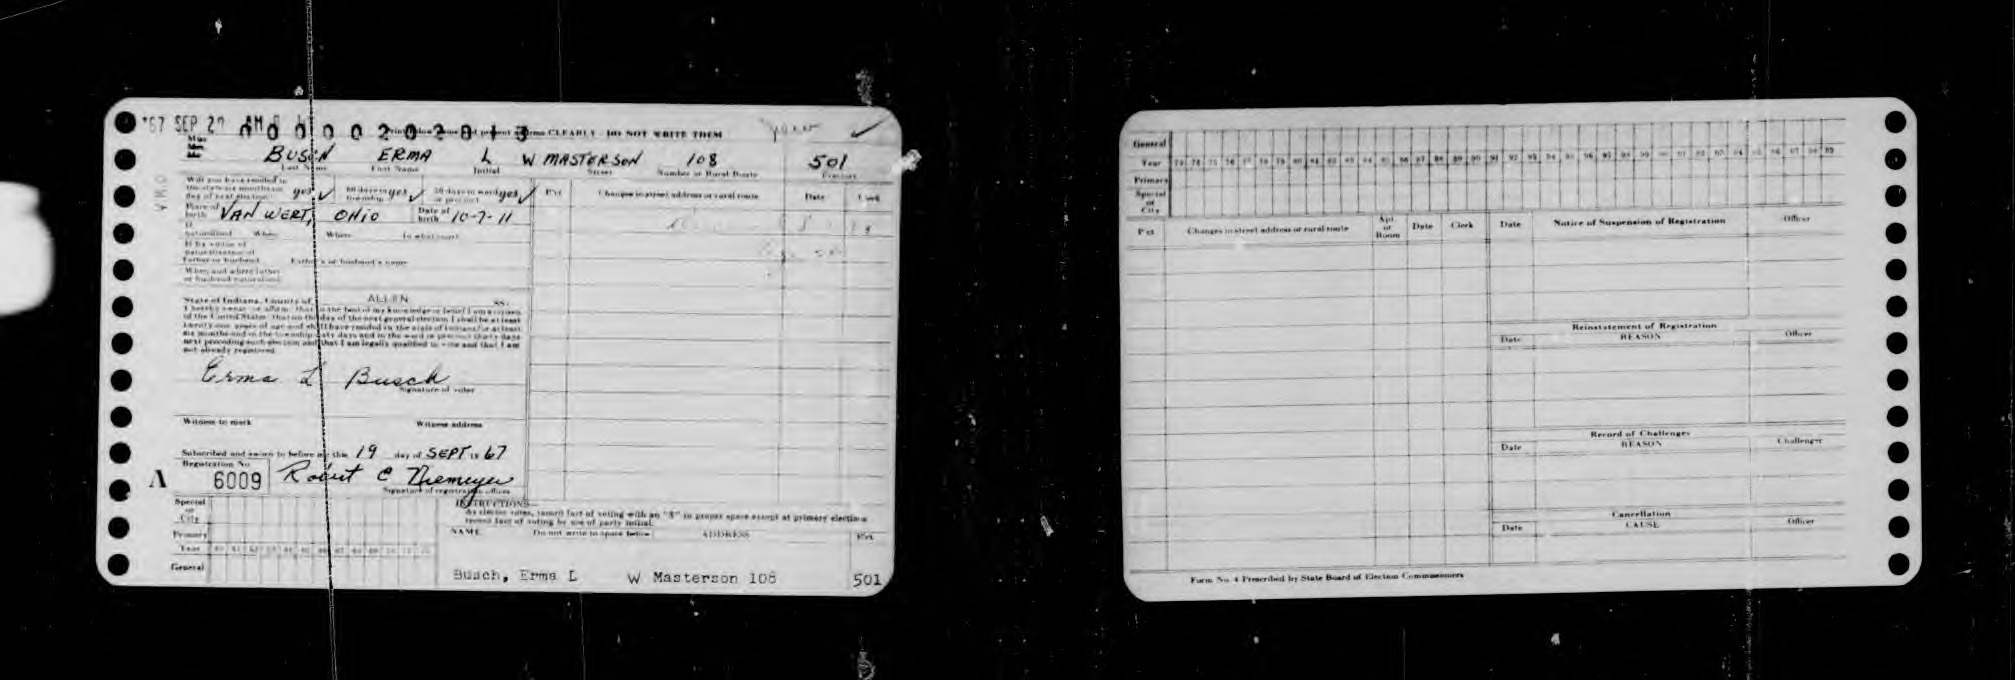 '67 SEP 20 AM
00000202813
CLEARLY DO NOT WRITE THEM
Miss
Mrs.
Mr.
BUSCH ERMA L W MASTERSON 108 501
Last Name First Name Initial Street Number or Rural Route Precinct
Will you have resided in
the state six months on yes ✓ 60 days in township yes ✓ 30 days in ward or precinct yes ✓
day of next election
Place of birth VAN WERT, OHIO Date of birth 10-7-11
If naturalized When Where In what court
If by virtue of
naturalization of
Father or husband Father's or husband's name
When and where father
or husband naturalized
State of Indiana, County of ALLEN ss:
I hereby swear or affirm that to the best of my knowledge or belief I am a citizen
of the United States, that on the day of the next general election I shall be at least
twenty-one years of age and shall have resided in the state of Indiana for at least
six months and in the township sixty days and in the ward or precinct thirty days
next preceding such election and that I am legally qualified to vote and that I am
not already registered.
Erma L Busch
Signature of voter
Witness to mark Witness address
Subscribed and sworn to before me this 19 day of SEPT 19 67
Registration No.
A 6009 Robert C Niemeyer
Signature of registration officer
Pct Changes in street address or rural route Date Clerk
Special
or
City
Primary
Year
General
INSTRUCTIONS—
As elector votes, record fact of voting with an "X" in proper space except at primary elections
record fact of voting by use of party initial.
NAME Do not write in space below ADDRESS Pct.
Busch, Erma L W Masterson 108 501
General
Year
Primary
Special
or
City
Pct Changes in street address or rural route Apt. or Room Date Clerk
Date Notice of Suspension of Registration Officer
Reinstatement of Registration
Date REASON Officer
Record of Challenges
Date REASON Challenger
Cancellation
Date CAUSE Officer
Form No. 4 Prescribed by State Board of Election Commissioners